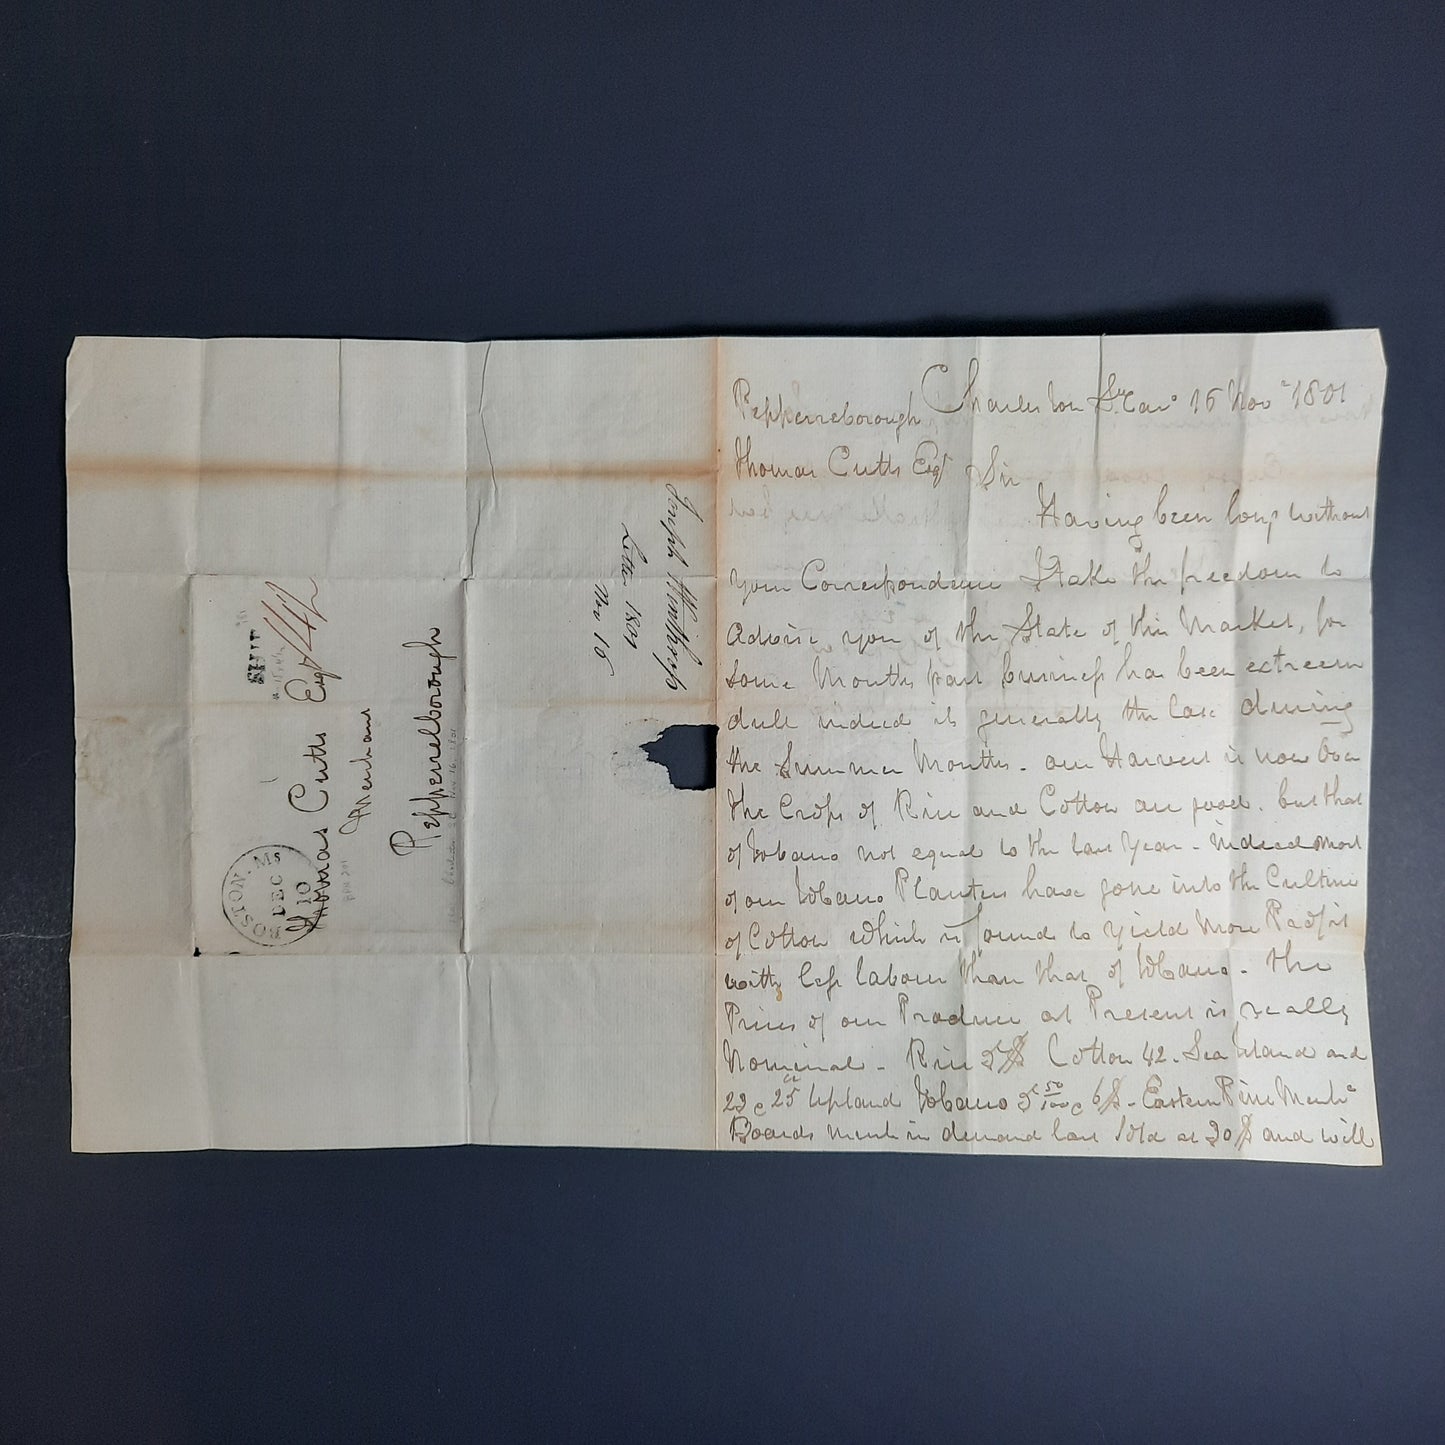 Charleston So Caro 16 Novr 1801
Pepperreborough
Thomas Cutts Esqr Sir
Having been long without
your Correspondence I take the freedom to
Advise you of the State of this Market, for
Some Months past business has been extreem
dull indeed it is generally the Case during
the Summer Months - our Harvest is now Over
the Crops of Rice and Cotton are good. but that
of Tobacco not equal to the last Year - indeed most
of our Tobacco Planters have gone into the Culture
of Cotton which is found to yield More Profit
with less labour than that of Tobacco - the
Prices of our Produce at Present is really
Nominal - Rice 5 $ Cotton 42 - Sea Island and
23 @ 25 cts Upland Tobacco 5 50/100 @ 6 $ - Eastern Pine Mercht
Boards much in demand last Sold at 20 $ and will
Joseph Winthrop's
Letter 1801
Nov 16
SHIP
Thomas Cutts Esqr
Merchant
Pepperreborough
BOSTON. Ms
DEC
10